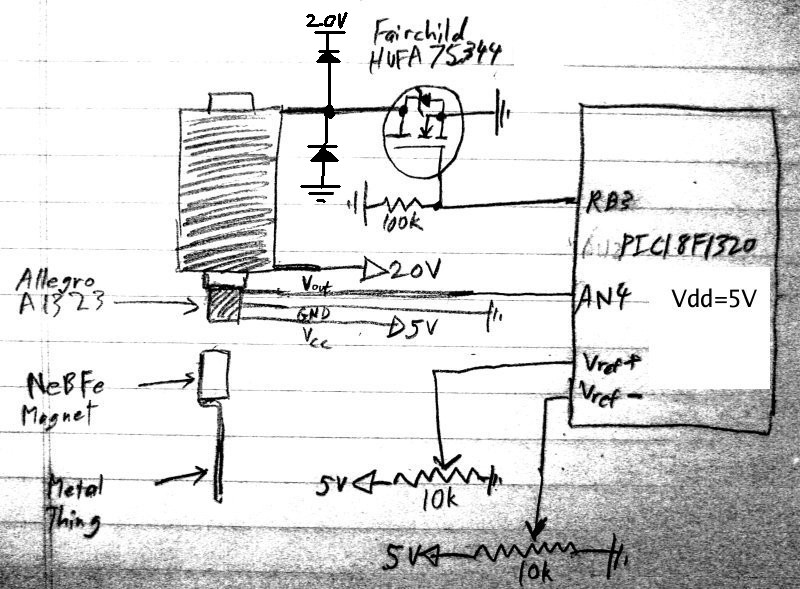 20V
Fairchild
HUFA 75344
RB3
100k
PIC18F1320
20V
Allegro
A1323
Vout
AN4
Vdd=5V
GND
5V
Vcc
Vref+
NeBFe
Magnet
Vref-
5V
10k
Metal
Thing
5V
10k